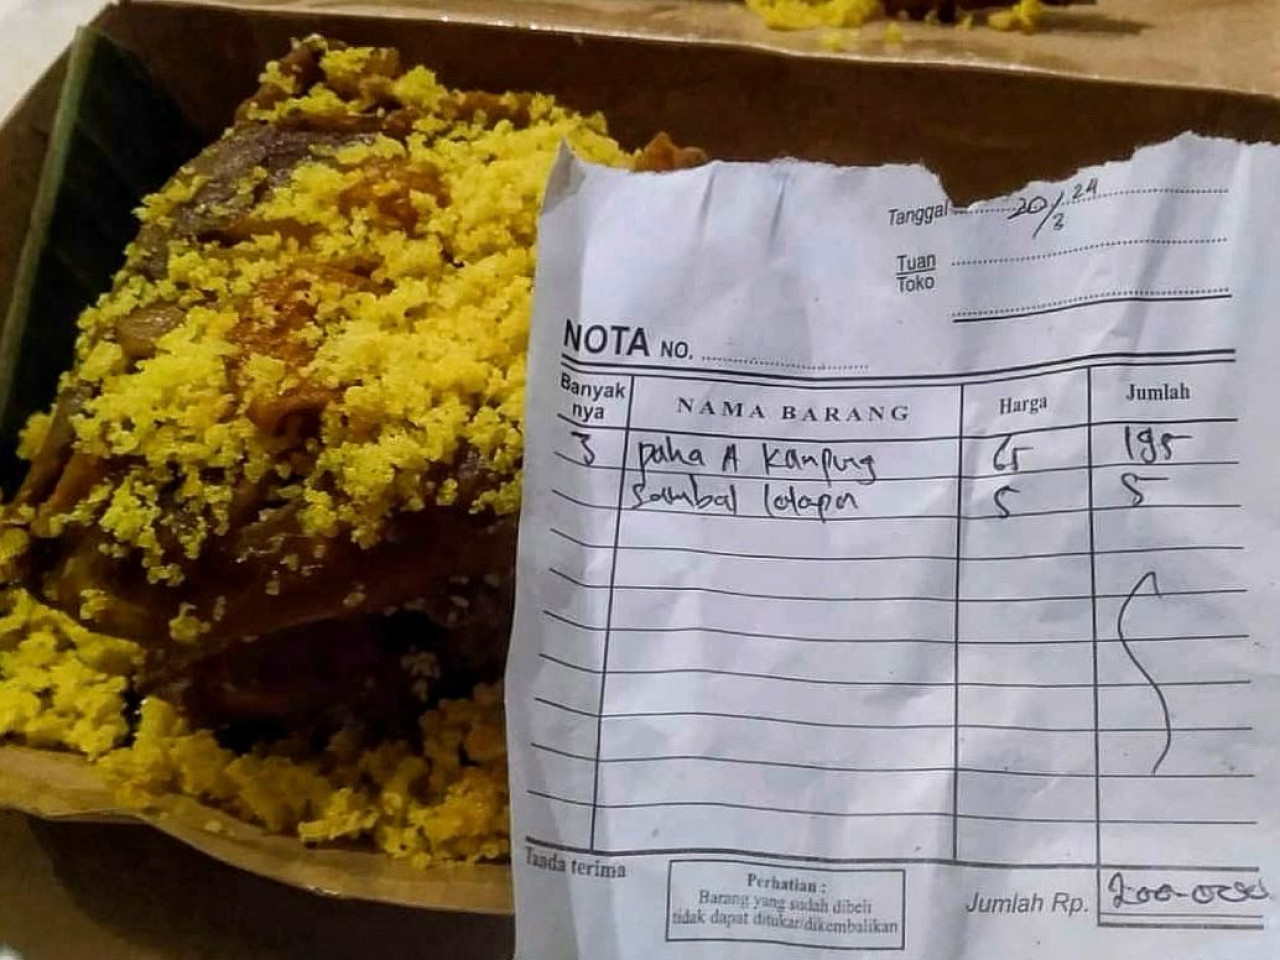 Tanggal 20/3 24
Tuan
Toko
NOTA NO.
Banyak nya NAMA BARANG Harga Jumlah
3 paha A kampung 65 195
Sambal lalapn 5 5
Tanda terima
Perhatian :
Barang yang sudah dibeli
tidak dapat ditukar/dikembalikan
Jumlah Rp. 200.000